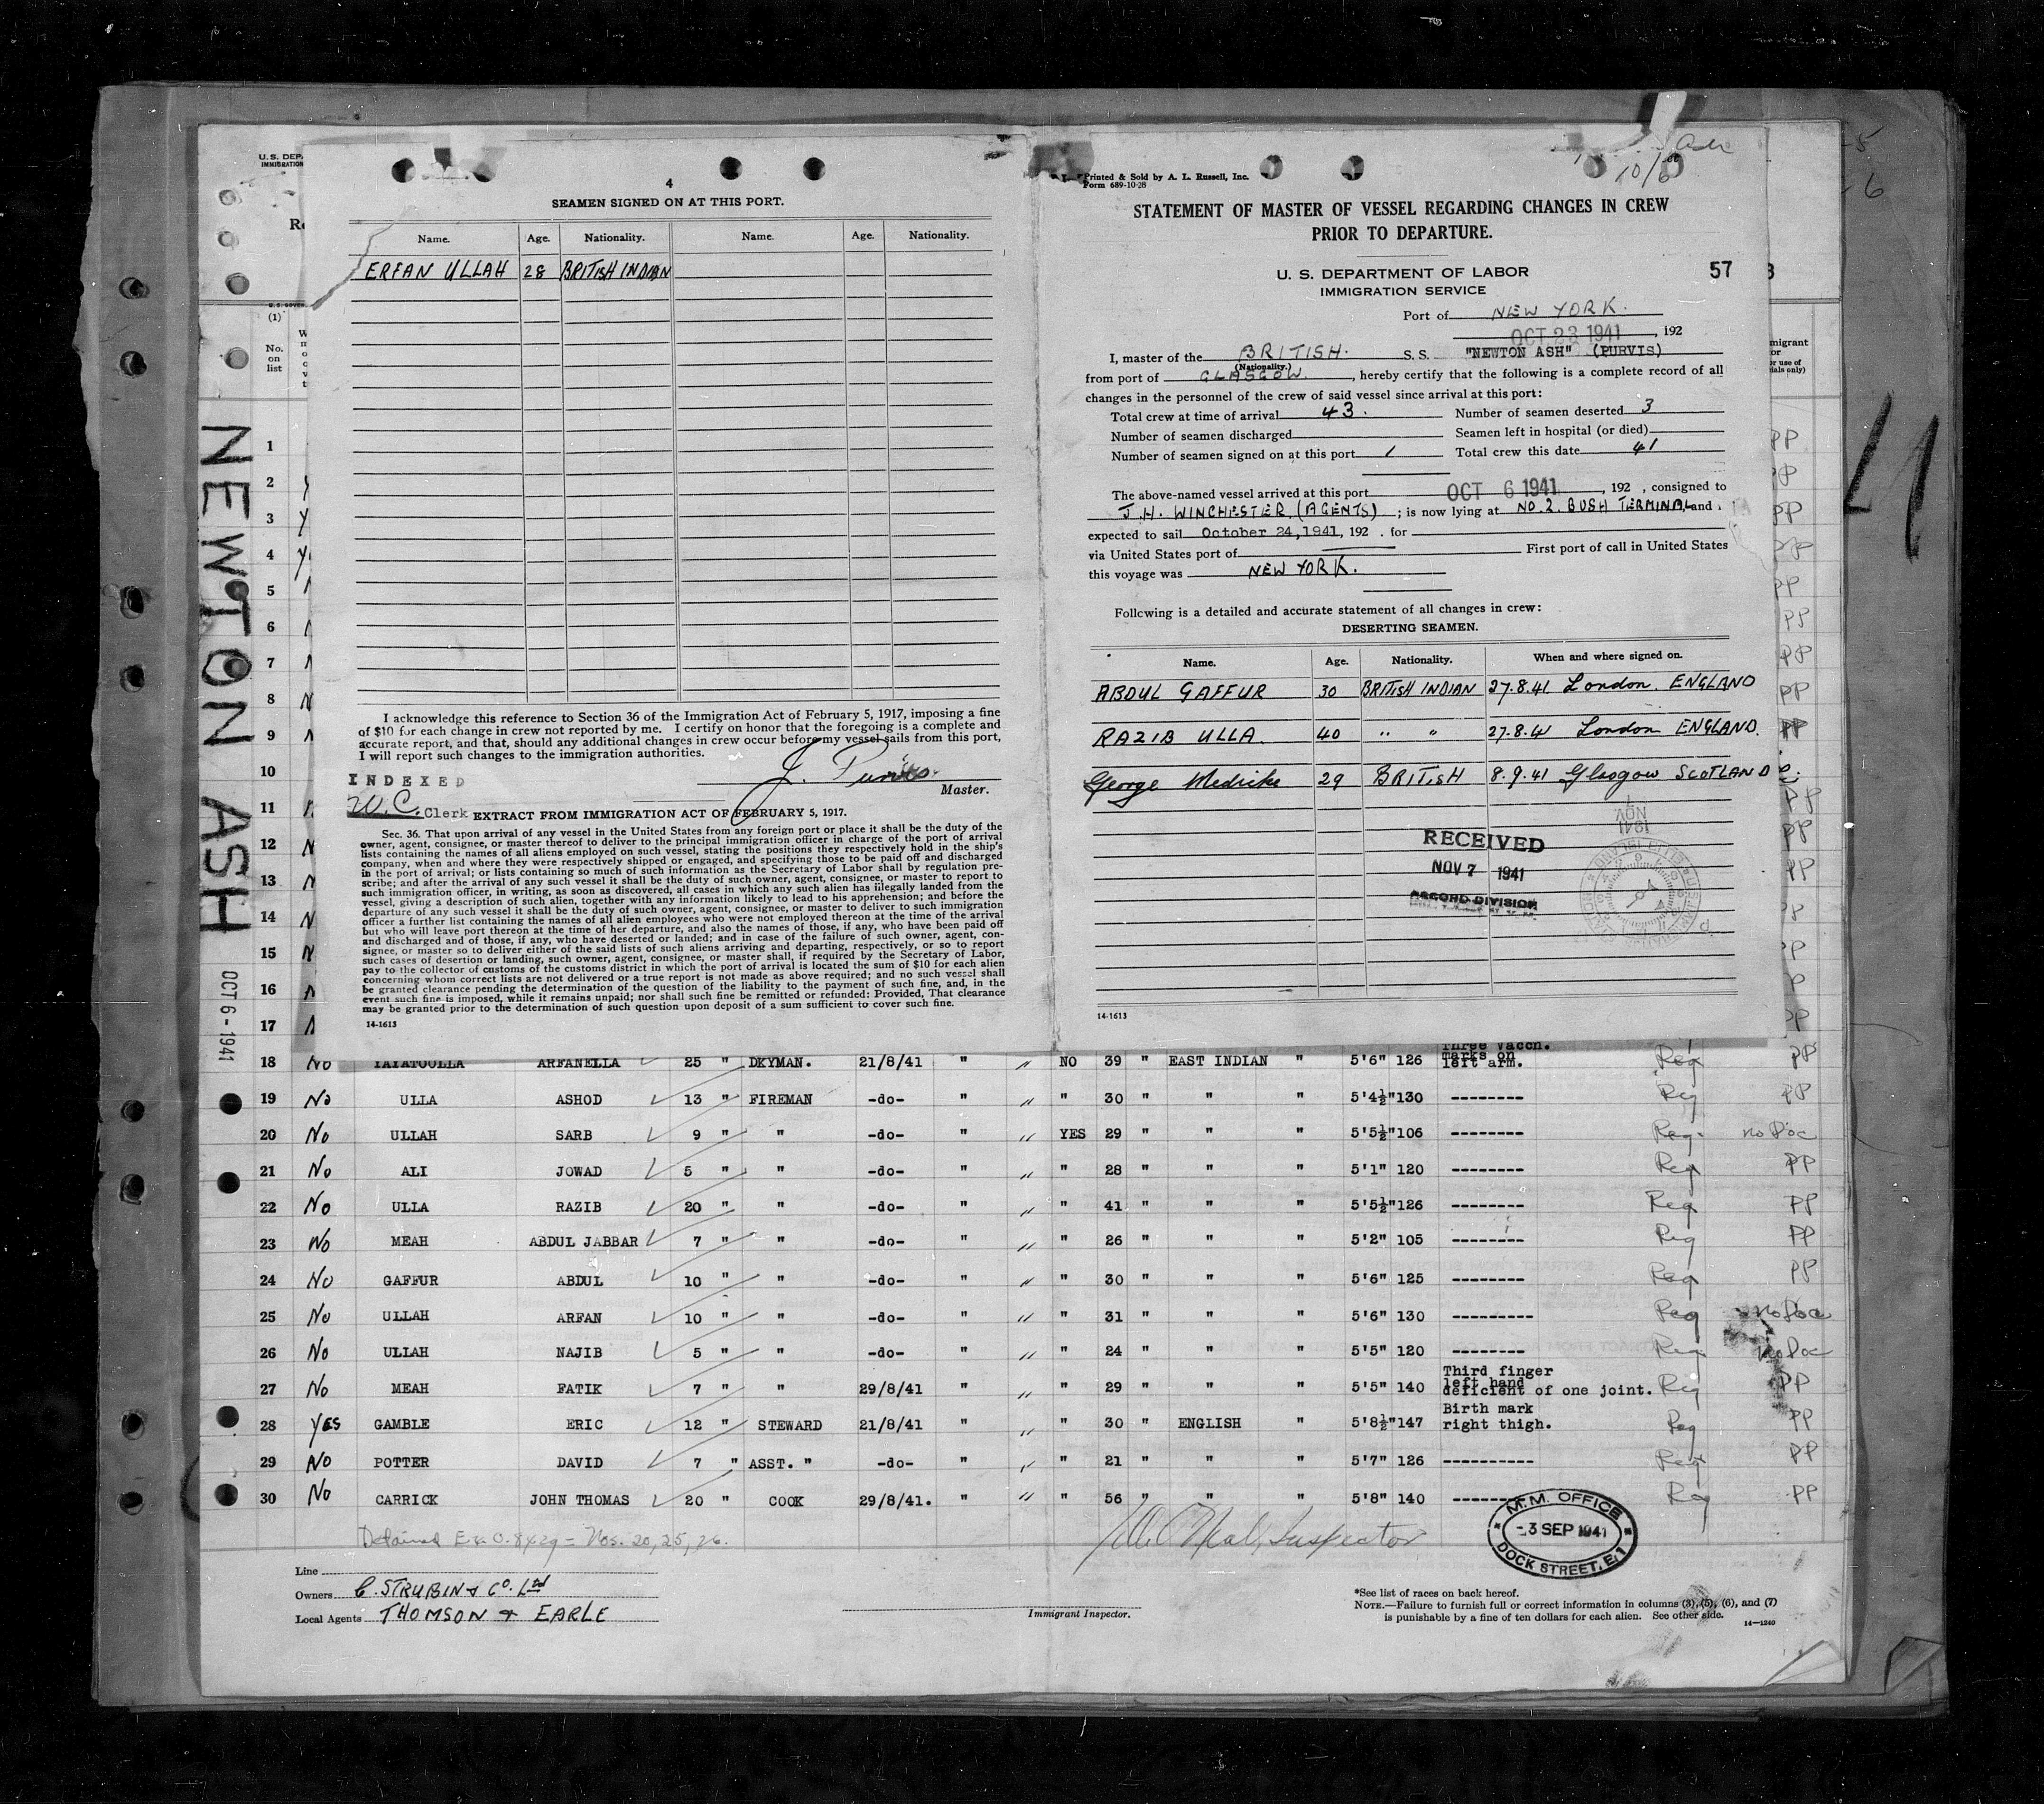 U.S. DEPA
IMMIGRATION
4
SEAMEN SIGNED ON AT THIS PORT.
Name. Age. Nationality. Name. Age. Nationality.
ERFAN ULLAH 28 BRITISH INDIAN
I acknowledge this reference to Section 36 of the Immigration Act of February 5, 1917, imposing a fine
of $10 for each change in crew not reported by me. I certify on honor that the foregoing is a complete and
accurate report, and that, should any additional changes in crew occur before my vessel sails from this port,
I will report such changes to the immigration authorities.
J. Purvis.
Master.
INDEXED
W.C. Clerk
EXTRACT FROM IMMIGRATION ACT OF FEBRUARY 5, 1917.
Sec. 36. That upon arrival of any vessel in the United States from any foreign port or place it shall be the duty of the
owner, agent, consignee, or master thereof to deliver to the principal immigration officer in charge of the port of arrival
lists containing the names of all aliens employed on such vessel, stating the positions they respectively hold in the ship's
company, when and where they were respectively shipped or engaged, and specifying those to be paid off and discharged
in the port of arrival; or lists containing so much of such information as the Secretary of Labor shall by regulation pre-
scribe; and after the arrival of any such vessel it shall be the duty of such owner, agent, consignee, or master to report to
such immigration officer, in writing, as soon as discovered, all cases in which any such alien has illegally landed from the
vessel, giving a description of such alien, together with any information likely to lead to his apprehension; and before the
departure of any such vessel it shall be the duty of such owner, agent, consignee, or master to deliver to such immigration
officer a further list containing the names of all alien employees who were not employed thereon at the time of the arrival
but who will leave port thereon at the time of her departure, and also the names of those, if any, who have been paid off
and discharged and of those, if any, who have deserted or landed; and in case of the failure of such owner, agent, con-
signee, or master so to deliver either of the said lists of such aliens arriving and departing, respectively, or so to report
such cases of desertion or landing, such owner, agent, consignee, or master shall, if required by the Secretary of Labor,
pay to the collector of customs of the customs district in which the port of arrival is located the sum of $10 for each alien
concerning whom correct lists are not delivered or a true report is not made as above required; and no such vessel shall
be granted clearance pending the determination of the question of the liability to the payment of such fine, and, in the
event such fine is imposed, while it remains unpaid; nor shall such fine be remitted or refunded: Provided, That clearance
may be granted prior to the determination of such question upon deposit of a sum sufficient to cover such fine.
14-1613
Printed & Sold by A. L. Russell, Inc.
Form 689-10-28
10/6
STATEMENT OF MASTER OF VESSEL REGARDING CHANGES IN CREW
PRIOR TO DEPARTURE.
U. S. DEPARTMENT OF LABOR
IMMIGRATION SERVICE
57
Port of NEW YORK.
OCT 23 1941, 192
I, master of the BRITISH. S. S. "NEWTON ASH" (PURVIS)
(Nationality.)
from port of GLASGOW, hereby certify that the following is a complete record of all
changes in the personnel of the crew of said vessel since arrival at this port:
Total crew at time of arrival 43. Number of seamen deserted 3
Number of seamen discharged Seamen left in hospital (or died)
Number of seamen signed on at this port 1 Total crew this date 41
The above-named vessel arrived at this port OCT 6 1941, 192 , consigned to
J.H. WINCHESTER (AGENTS); is now lying at NO. 2. BUSH TERMINAL and
expected to sail October 24, 1941, 192 . for
via United States port of First port of call in United States
this voyage was NEW YORK.
Following is a detailed and accurate statement of all changes in crew:
DESERTING SEAMEN.
Name. Age. Nationality. When and where signed on.
ABDUL GAFFUR 30 BRITISH INDIAN 27.8.41 London. ENGLAND
RAZIB ULLA 40 " " 27.8.41 London ENGLAND.
George Medrike 29 BRITISH 8.9.41 Glasgow SCOTLAND
RECEIVED
NOV 7 1941
RECORD DIVISION
NOV 7 1941
14-1613
NEWTON ASH
OCT 6 - 1941
(1)
No.
on
list
1
2
3
4
5
6
7
8
9
10
11
12
13
14
15
16
17
18 No TAYATOOLLA ARFANELLA 25 " DKYMAN. 21/8/41 " " NO 39 " EAST INDIAN " 5'6" 126 Three vaccn. marks on left arm. Req PP
19 No ULLA ASHOD 13 " FIREMAN -do- " " " 30 " " " 5'4½" 130 -------- Req PP
20 No ULLAH SARB 9 " " -do- " " YES 29 " " " 5'5½" 106 -------- Req. no Doc
21 No ALI JOWAD 5 " " -do- " " " 28 " " " 5'1" 120 -------- Req PP
22 No ULLA RAZIB 20 " " -do- " " " 41 " " " 5'5½" 126 -------- Req PP
23 No MEAH ABDUL JABBAR 7 " " -do- " " " 26 " " " 5'2" 105 -------- Req PP
24 No GAFFUR ABDUL 10 " " -do- " " " 30 " " " 5'6" 125 -------- Req PP
25 No ULLAH ARFAN 10 " " -do- " " " 31 " " " 5'6" 130 --------- Req no Doc
26 No ULLAH NAJIB 5 " " -do- " " " 24 " " " 5'5" 120 -------- Req no Doc
27 No MEAH FATIK 7 " " 29/8/41 " " " 29 " " " 5'5" 140 Third finger left hand deficient of one joint. Req PP
28 Yes GAMBLE ERIC 12 " STEWARD 21/8/41 " " " 30 " ENGLISH " 5'8½" 147 Birth mark right thigh. Req PP
29 No POTTER DAVID 7 " ASST. " -do- " " " 21 " " " 5'7" 126 ---------- Req PP
30 No CARRICK JOHN THOMAS 20 " COOK 29/8/41. " " " 56 " " " 5'8" 140 -------- Req PP
Detained Ex. O. 8429 = Nos. 20, 25, 26.
Inspector
M.M. OFFICE
-3 SEP 1941
DOCK STREET, E.1
Line
Owners C. STRUBIN & Co. Ltd
Local Agents THOMSON & EARLE
Immigrant Inspector.
*See list of races on back hereof.
NOTE.—Failure to furnish full or correct information in columns (3), (5), (6), and (7)
is punishable by a fine of ten dollars for each alien. See other side.
14—1240